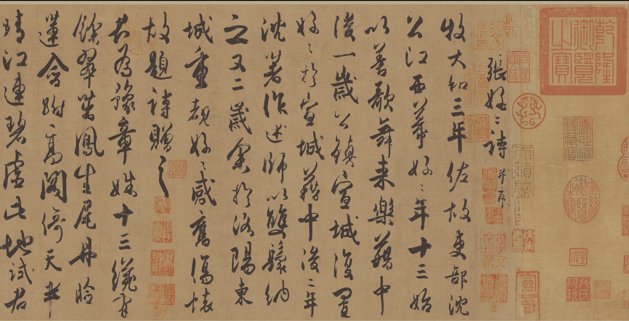 乾隆
御覽
之寶
張好〻詩并序
牧大和三年佐故吏部沈
公江西幕好〻年十三始
以善歌舞来樂籍中
後一歲公鎮宣城復置
好〻於宣城籍中後二年
沈著作述師以雙鬟納
之又二歲余於洛陽東
城重覩好〻感舊傷懷
故題詩贈之
君為豫章姝十三纔有
餘翠茁鳳生尾丹臉
蓮含跗高閣倚天半
晴江連碧虛此地試君